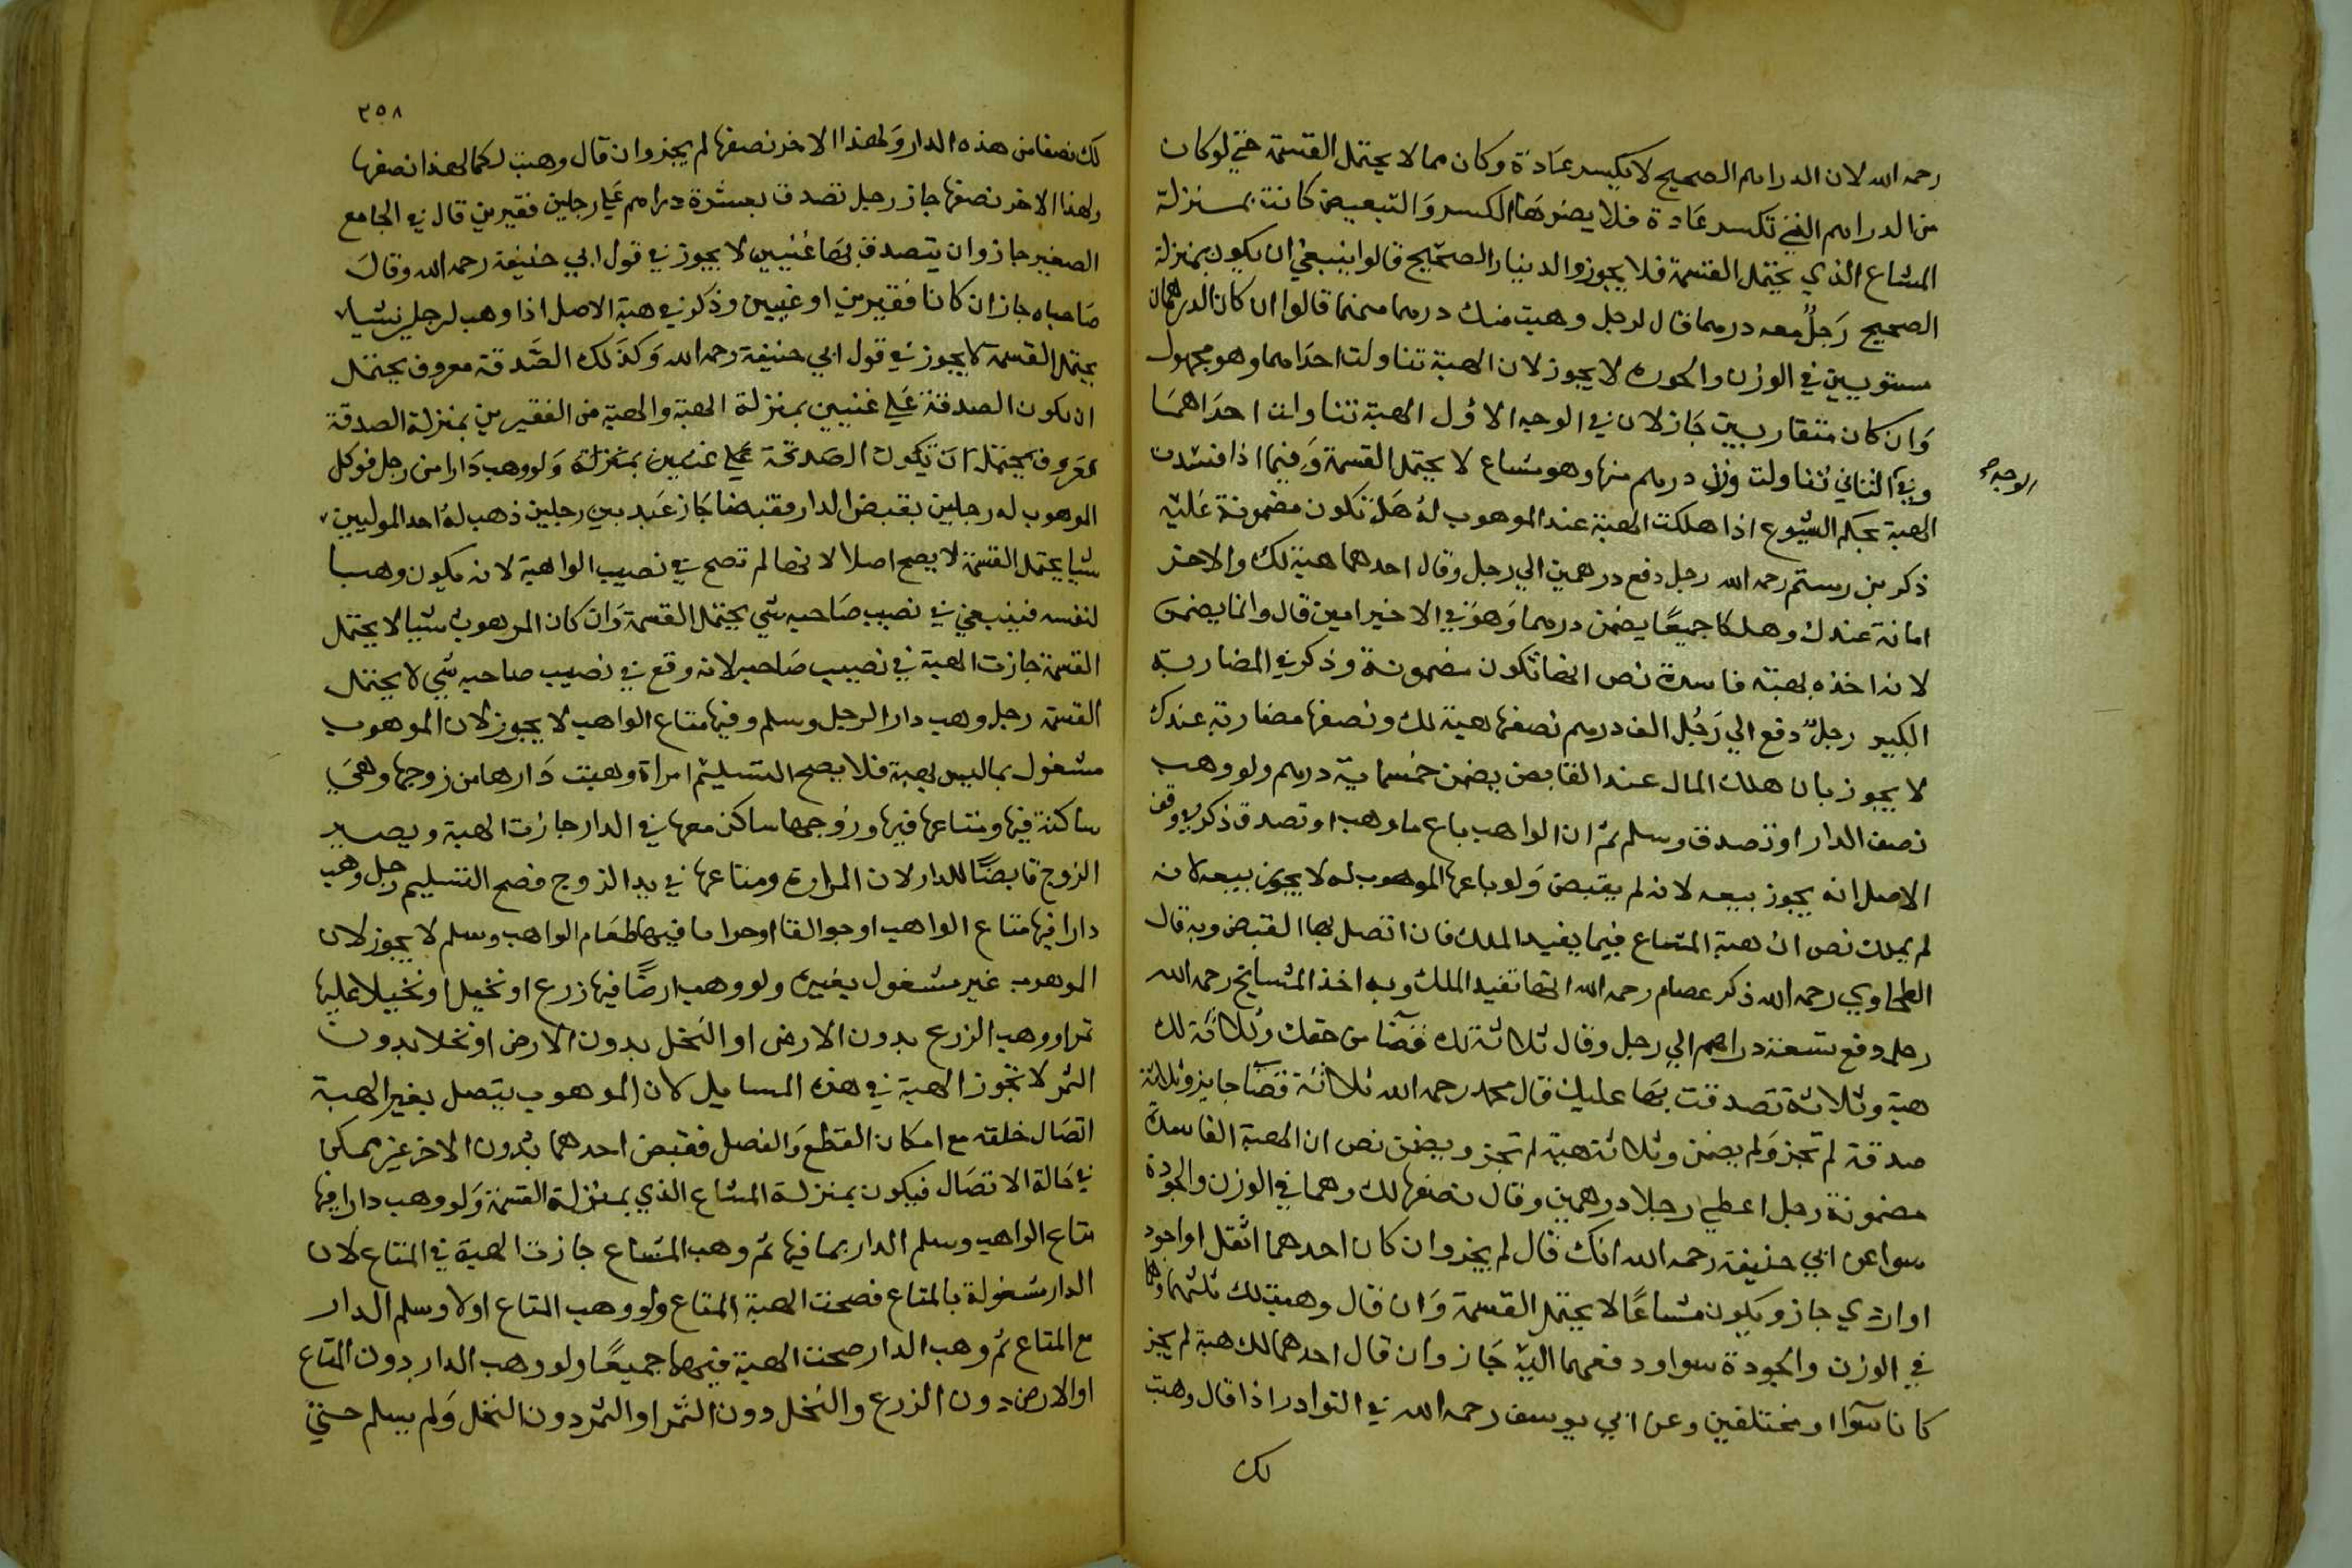 رحمه الله لان الدراهم الصحيح لا يكسر عادة وكان مما لا يحتمل القسمة حتي لو كان
من الدراهم التي تكسر عادة فلا يضرها الكسر والتبعيض كانت بمنزلة
المشاع الذي يحتمل القسمة فلا يجوز والدينار الصحيح قالوا ينبغي ان يكون بمنزلة
الصحيح رجل معه درهما قال لرجل وهبت منك درهما منهما قالوا ان كان الدرهمان
مستويين في الوزن والجودة لا يجوز لان الهبة تناولت احدهما وهو مجهول
وان كان متقاربين جاز لان في الوجه الاول الهبة تناولت احداهما
وفي الثاني تناولت وزن درهم منها وهو مشاع لا يحتمل القسمة وفيما اذا فسدت
الوجه
الهبة بحكم الشيوع اذا هلكت الهبة عند الموهوب له هل تكون مضمونة عليه
ذكر بن رستم رحمه الله رجل دفع درهمين الي رجل وقال احدهما هبة لك والاخر
امانة عندك وهلكا جميعا يضمن درهما وهو في الاخير امين قال وانما يضمن
لانه اخذه بهبة فاسدة نص انها تكون مضمونة وذكر في المضاربة
الكبير رجل دفع الي رجل الف درهم نصفها هبة لك ونصفها مضاربة عندك
لا يجوز بان هلك المال عند القابض يضمن خمسماية درهم ولو وهب
نصف الدار او تصدق وسلم ثم ان الواهب باع ما وهب او تصدق ذكر في وقف
الاصل انه يجوز بيعه لانه لم يقبض ولو باعها الموهوب له لا يجوز بيعه لانه
لم يملك نص ان هبة المشاع فيما يفيد الملك فان اتصل بها القبض وبه قال
الطحاوي رحمه الله ذكر عصام رحمه الله انها تفيد الملك وبه اخذ المشايخ رحمه الله
رجل دفع تسعة دراهم الي رجل وقال ثلاثة لك قضا من حقك وثلاثة لك
هبة وثلاثة تصدقت بها عليك قال محمد رحمه الله ثلاثة قضا جايز وثلاثة
صدقة لم تجز ولم يضمن وثلاثة هبة لم تجز ويضمن نص ان الهبة الفاسدة
مضمونة رجل اعطي رجلا درهمين وقال نصفها لك وهما في الوزن والجودة
سوا عن ابي حنيفة رحمه الله انك قال لم يجز وان كان احدهما اثقل او اجود
او اردي جاز ويكون مشاعا لا يحتمل القسمة وان قال وهبت لك ثلثهما وهما
في الوزن والجودة سوا ودفعهما اليه جاز وان قال احدهما لك هبة لم يجز
كانا سوا او مختلفين وعن ابي يوسف رحمه الله في النوادر اذا قال وهبت
لك
٢٥٨
لك نصفا من هذه الدار ولهذا الاخر نصفها لم يجز وان قال وهبت لكما لهذا نصفها
ولهذا الاخر نصفها جاز رجل تصدق بعشرة دراهم علي رجلين فقيرين قال في الجامع
الصغير جاز وان يتصدق بها غنيين لا يجوز في قول ابي حنيفة رحمه الله وقال
صاحباه جاز ان كانا فقيرين او غنيين وذكر في هبة الاصل اذا وهب لرجلين شيا
يحتمل القسمة لا يجوز في قول ابي حنيفة رحمه الله وكذلك الصدقة معروف يحتمل
ان يكون الصدقة علي غنيين بمنزلة الهبة والهبة من الفقيرين بمنزلة الصدقة
معروف يحتمل ان تكون الصدقة علي غنيين بمنزلة ولو وهب دارا من رجل فوكل
الموهوب له رجلين بقبض الدار فقبضا جاز عبد بين رجلين ذهب له احد الموليين
شيا يحتمل القسمة لا يصح اصلا لانها لم تصح في نصيب الواهبة لانه يكون وهبا
لنفسه فينبغي في نصيب صاحبه شي يحتمل القسمة وان كان الموهوب شيا لا يحتمل
القسمة جازت الهبة في نصيب صاحبه لانه وقع في نصيب صاحبه شي لا يحتمل
القسمة رجل وهب دارا لرجل وسلم وفيها متاع الواهب لا يجوز لان الموهوب
مشغول بما ليس بهبة فلا يصح التسليم امراة وهبت دارها من زوجها وهي
ساكنة فيها ومتاعها فيها وزوجها ساكن معها في الدار جازت الهبة ويصير
الزوج قابضا للدار لان المراة ومتاعها في يد الزوج فصح التسليم رجل وهب
دارا فيها متاع الواهب او جوالقا او جرابا فيها طعام الواهب وسلم لا يجوز لان
الموهوب غير مشغول بغيره ولو وهب ارضا فيها زرع او نخيل او نخيلا عليها
تمر او وهب الزرع بدون الارض او النخل بدون الارض او نخلا بدون
الثمر لا تجوز الهبة في هذه المسايل لان الموهوب يتصل بغير الهبة
اتصال خلقه مع امكان القطع والفصل فقبض احدهما بدون الاخر غير ممكن
في حالة الاتصال فيكون بمنزلة المشاع الذي بمنزلة القسمة ولو وهب دارا فيها
متاع الواهب وسلم الدار بما فيها ثم وهب المشاع جازت الهبة في المتاع لان
الدار مشغولة بالمتاع فصحت الهبة المتاع ولو وهب المتاع اولا وسلم الدار
مع المتاع ثم وهب الدار صحت الهبة فيهما جميعا ولو وهب الدار دون المتاع
او الارض دون الزرع والنخل دون الثمر او الثمر دون النخل ولم يسلم حتي